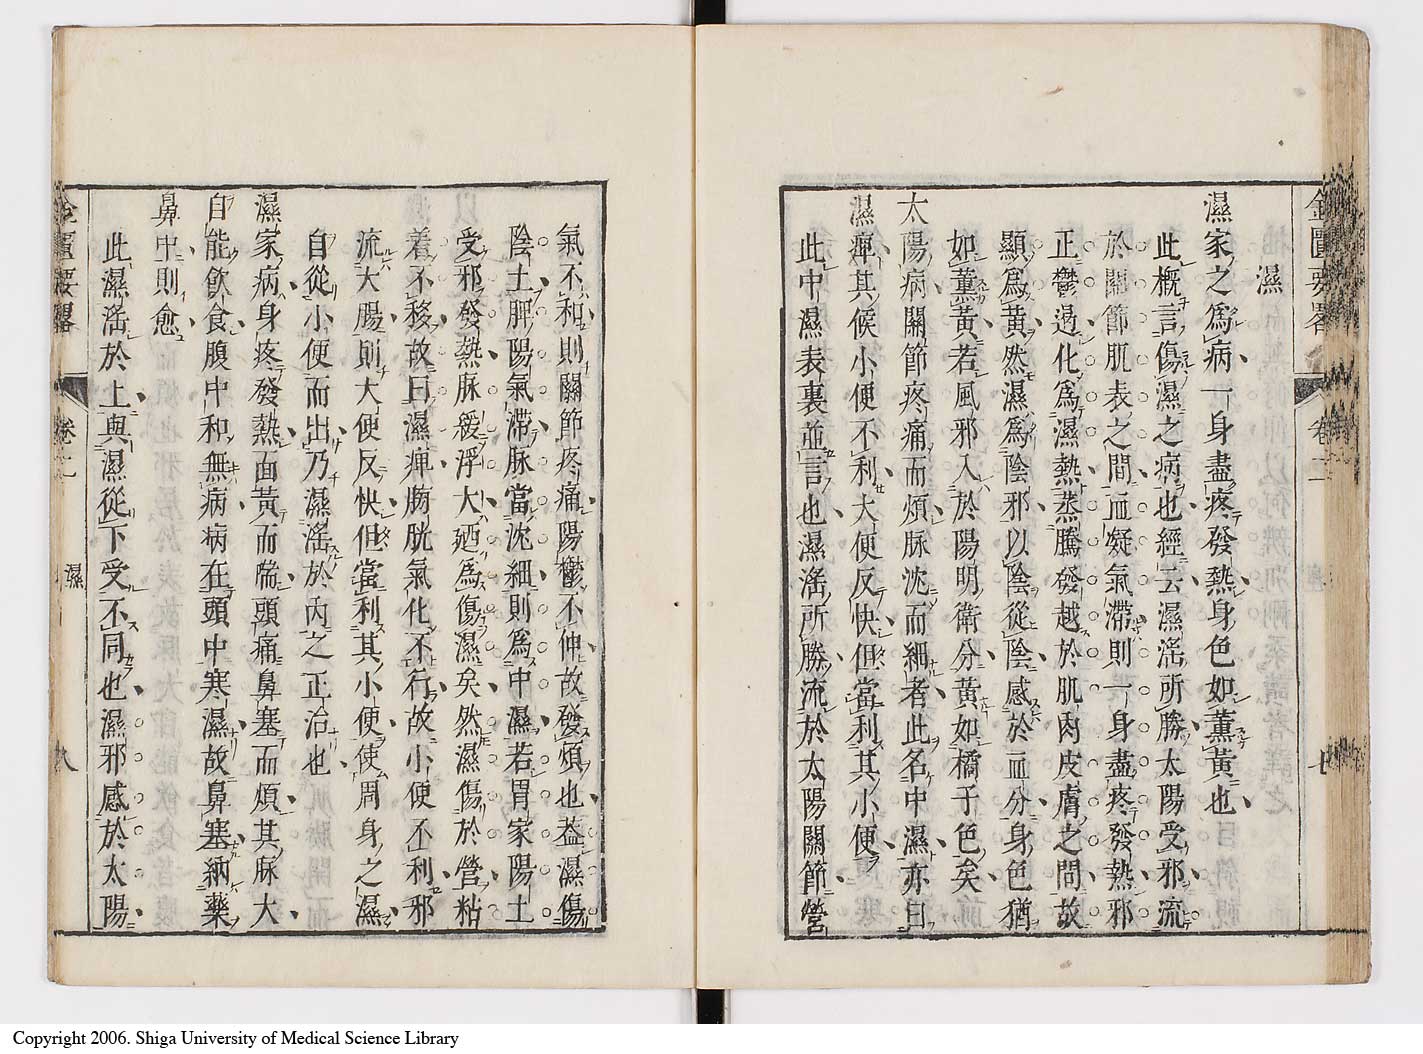 金匱要畧 卷二 七
濕
濕家之爲病一身盡疼發熱身色如薫黃也
此概言傷濕之病也經云濕滛所勝太陽受邪流
於關節肌表之間血凝氣滯則一身盡疼發熱邪
正鬱遏化爲濕熱蒸騰發越於肌肉皮膚之間故
顯爲黃然濕爲陰邪以陰從陰感於血分身色猶
如薫黃若風邪入於陽明衛分黃如橘子色矣
太陽病關節疼痛而煩脉沈而細者此名中濕亦曰
濕痺其候小便不利大便反快但當利其小便
此中濕表裏並言也濕滛所勝流於太陽關節營
氣不和則關節疼痛陽鬱不伸故發煩也葢濕傷
陰土脾陽氣滯脉當沈細則爲中濕若胃家陽土
受邪發熱脉緩浮大廼爲傷濕矣然濕傷於營粘
着不移故曰濕痺膀胱氣化不行故小便不利邪
流大腸則大便反快但當利其小便使周身之濕
自從小便而出乃濕滛於內之正治也
濕家病身疼發熱面黃而喘頭痛鼻塞而煩其脉大
自能飮食腹中和無病病在頭中寒濕故鼻塞納藥
鼻中則愈
此濕滛於上與濕從下受不同也濕邪感於太陽
金匱要畧 卷二 濕 八
Copyright 2006. Shiga University of Medical Science Library